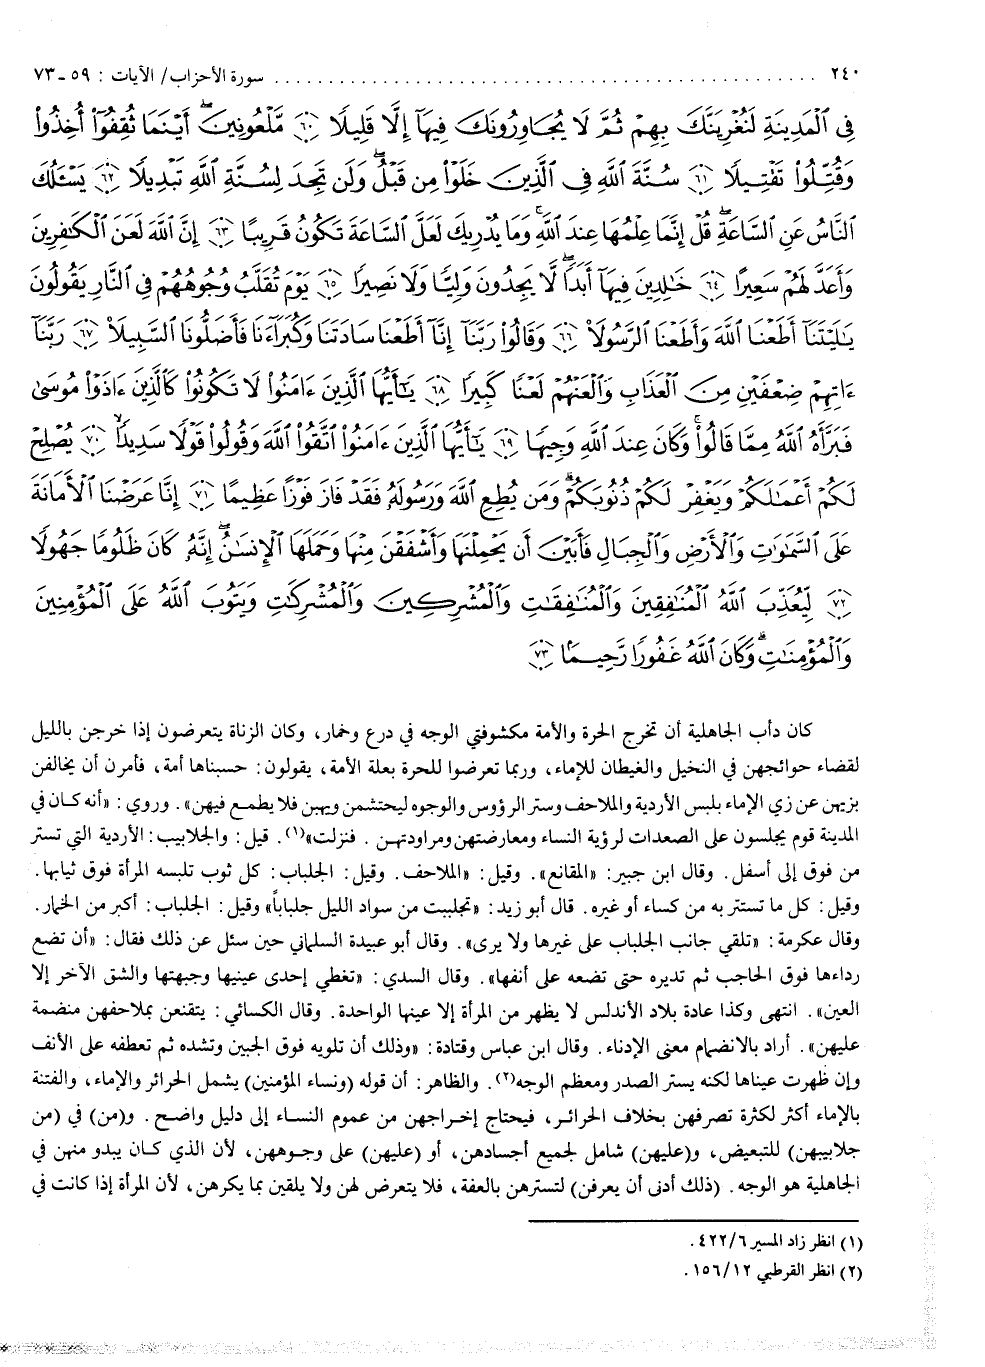 ٢٤٠ ............................................................ سورة الأحزاب/ الآيات : ٥٩-٧٣
فِي ٱلْمَدِينَةِ لَنُغْرِيَنَّكَ بِهِمْ ثُمَّ لَا يُجَاوِرُونَكَ فِيهَآ إِلَّا قَلِيلًا ﴿٦٠﴾ مَّلْعُونِينَۖ أَيْنَمَا ثُقِفُوٓاْ أُخِذُواْ
وَقُتِّلُواْ تَقْتِيلًا ﴿٦١﴾ سُنَّةَ ٱللَّهِ فِي ٱلَّذِينَ خَلَوْاْ مِن قَبْلُۖ وَلَن تَجِدَ لِسُنَّةِ ٱللَّهِ تَبْدِيلًا ﴿٦٢﴾ يَسْـَٔلُكَ
ٱلنَّاسُ عَنِ ٱلسَّاعَةِۖ قُلْ إِنَّمَا عِلْمُهَا عِندَ ٱللَّهِۚ وَمَا يُدْرِيكَ لَعَلَّ ٱلسَّاعَةَ تَكُونُ قَرِيبًا ﴿٦٣﴾ إِنَّ ٱللَّهَ لَعَنَ ٱلْكَـٰفِرِينَ
وَأَعَدَّ لَهُمْ سَعِيرًا ﴿٦٤﴾ خَـٰلِدِينَ فِيهَآ أَبَدًاۖ لَّا يَجِدُونَ وَلِيًّا وَلَا نَصِيرًا ﴿٦٥﴾ يَوْمَ تُقَلَّبُ وُجُوهُهُمْ فِي ٱلنَّارِ يَقُولُونَ
يَـٰلَيْتَنَآ أَطَعْنَا ٱللَّهَ وَأَطَعْنَا ٱلرَّسُولَا۠ ﴿٦٦﴾ وَقَالُواْ رَبَّنَآ إِنَّآ أَطَعْنَا سَادَتَنَا وَكُبَرَآءَنَا فَأَضَلُّونَا ٱلسَّبِيلَا۠ ﴿٦٧﴾ رَبَّنَآ
ءَاتِهِمْ ضِعْفَيْنِ مِنَ ٱلْعَذَابِ وَٱلْعَنْهُمْ لَعْنًا كَبِيرًا ﴿٦٨﴾ يَـٰٓأَيُّهَا ٱلَّذِينَ ءَامَنُواْ لَا تَكُونُواْ كَٱلَّذِينَ ءَاذَوْاْ مُوسَىٰ
فَبَرَّأَهُ ٱللَّهُ مِمَّا قَالُواْۚ وَكَانَ عِندَ ٱللَّهِ وَجِيهًا ﴿٦٩﴾ يَـٰٓأَيُّهَا ٱلَّذِينَ ءَامَنُواْ ٱتَّقُواْ ٱللَّهَ وَقُولُواْ قَوْلًا سَدِيدًاۙ ﴿٧٠﴾ يُصْلِحْ
لَكُمْ أَعْمَـٰلَكُمْ وَيَغْفِرْ لَكُمْ ذُنُوبَكُمْۗ وَمَن يُطِعِ ٱللَّهَ وَرَسُولَهُۥ فَقَدْ فَازَ فَوْزًا عَظِيمًا ﴿٧١﴾ إِنَّا عَرَضْنَا ٱلْأَمَانَةَ
عَلَى ٱلسَّمَـٰوَٰتِ وَٱلْأَرْضِ وَٱلْجِبَالِ فَأَبَيْنَ أَن يَحْمِلْنَهَا وَأَشْفَقْنَ مِنْهَا وَحَمَلَهَا ٱلْإِنسَـٰنُۖ إِنَّهُۥ كَانَ ظَلُومًا جَهُولًا
﴿٧٢﴾ لِّيُعَذِّبَ ٱللَّهُ ٱلْمُنَـٰفِقِينَ وَٱلْمُنَـٰفِقَـٰتِ وَٱلْمُشْرِكِينَ وَٱلْمُشْرِكَـٰتِ وَيَتُوبَ ٱللَّهُ عَلَى ٱلْمُؤْمِنِينَ
وَٱلْمُؤْمِنَـٰتِۗ وَكَانَ ٱللَّهُ غَفُورًا رَّحِيمًا ﴿٧٣﴾
كان دأب الجاهلية أن تخرج الحرة والأمة مكشوفتي الوجه في درع وخمار، وكان الزناة يتعرضون إذا خرجن بالليل
لقضاء حوائجهن في النخيل والغيطان للإماء، وربما تعرضوا للحرة بعلة الأمة، يقولون: حسبناها أمة، فأمرن أن يخالفن
بزيهن عن زي الإماء بلبس الأردية والملاحف وستر الرؤوس والوجوه ليحتشمن ويهبن فلا يطمع فيهن». وروي: «أنه كان في
المدينة قوم يجلسون على الصعدات لرؤية النساء ومعارضتهن ومراودتهـن . فنزلت»(١). قيل: والجلابيب: الأردية التي تستر
من فوق إلى أسفل. وقال ابن جبير: «المقانع». وقيل: «الملاحف. وقيل: الجلباب: كل ثوب تلبسه المرأة فوق ثيابها.
وقيل: كل ما تستتر به من كساء أو غيره. قال أبو زيد: «تجلببت من سواد الليل جلباباً» وقيل: الجلباب: أكبر من الخمار.
وقال عكرمة: «تلقي جانب الجلباب على غيرها ولا يرى». وقال أبو عبيدة السلماني حين سئل عن ذلك فقال: «أن تضع
رداءها فوق الحاجب ثم تديره حتى تضعه على أنفها». وقال السدي: «تغطي إحدى عينيها وجبهتها والشق الآخر إلا
العين». انتهى وكذا عادة بلاد الأندلس لا يظهر من المرأة إلا عينها الواحدة. وقال الكسائي: يتقنعن بملاحفهن منضمة
عليهن». أراد بالانضمام معنى الإدناء. وقال ابن عباس وقتادة: «وذلك أن تلويه فوق الجبين وتشده ثم تعطفه على الأنف
وإن ظهرت عيناها لكنه يستر الصدر ومعظم الوجه(٢). والظاهر: أن قوله (ونساء المؤمنين) يشمل الحرائر والإماء، والفتنة
بالإماء أكثر لكثرة تصرفهن بخلاف الحرائـر، فيحتاج إخـراجهن من عموم النسـاء إلى دليل واضـح. و(من) في (من
جلابيبهن) للتبعيض، و(عليهن) شامل لجميع أجسادهن، أو (عليهن) على وجـوههن، لأن الذي كـان يبدو منهن في
الجاهلية هو الوجه. (ذلك أدنى أن يعرفن) لتسترهن بالعفة، فلا يتعرض لهن ولا يلقين بما يكرهن، لأن المرأة إذا كانت في
(١) انظر زاد المسير ٦/٤٢٢.
(٢) انظر القرطبي ١٢/١٥٦.